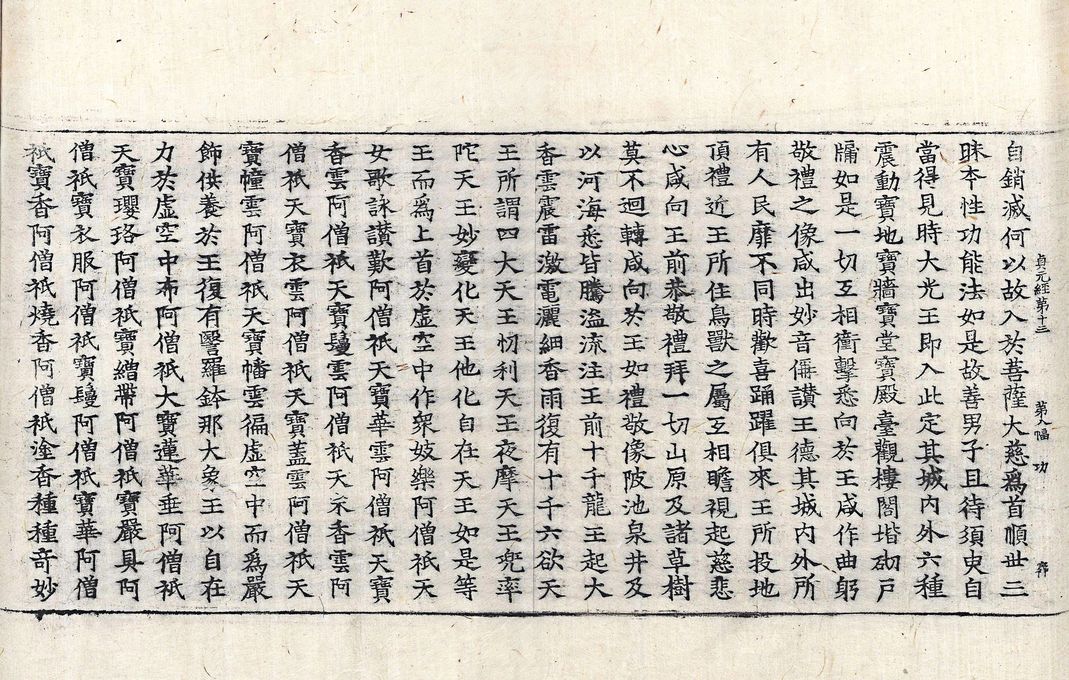 貞元經第十三　第八幅　功
自銷滅何以故入於菩薩大慈爲首順世三
昧本性功能法如是故善男子且待須臾自
當得見時大光王即入此定其城內外六種
震動寶地寶牆寶堂寶殿臺觀樓閣堦砌戶
牖如是一切互相衝擊悉向於王咸作曲躬
敬禮之像咸出妙音儛讃王德其城內外所
有人民靡不同時歡喜踊躍俱來王所投地
頂禮近王所住鳥獸之屬互相瞻視起慈悲
心咸向王前恭敬禮拜一切山原及諸草樹
莫不迴轉咸向於王如禮敬像陂池泉井及
以河海悉皆騰溢流注王前十千龍王起大
香雲震雷激電灑細香雨復有十千六欲天
王所謂四大天王忉利天王夜摩天王兜率
陀天王妙變化天王他化自在天王如是等
王而爲上首於虛空中作衆妓樂阿僧祇天
女歌詠讃歎阿僧祇天寶華雲阿僧祇天寶
香雲阿僧祇天寶鬘雲阿僧祇天末香雲阿
僧祇天寶衣雲阿僧祇天寶蓋雲阿僧祇天
寶幢雲阿僧祇天寶幡雲徧虛空中而爲嚴
飾供養於王復有瑿羅鉢那大象王以自在
力於虛空中布阿僧祇大寶蓮華垂阿僧祇
天寶瓔珞阿僧祇寶繒帶阿僧祇寶嚴具阿
僧祇寶衣服阿僧祇寶鬘阿僧祇寶華阿僧
祇寶香阿僧祇燒香阿僧祇塗香種種奇妙